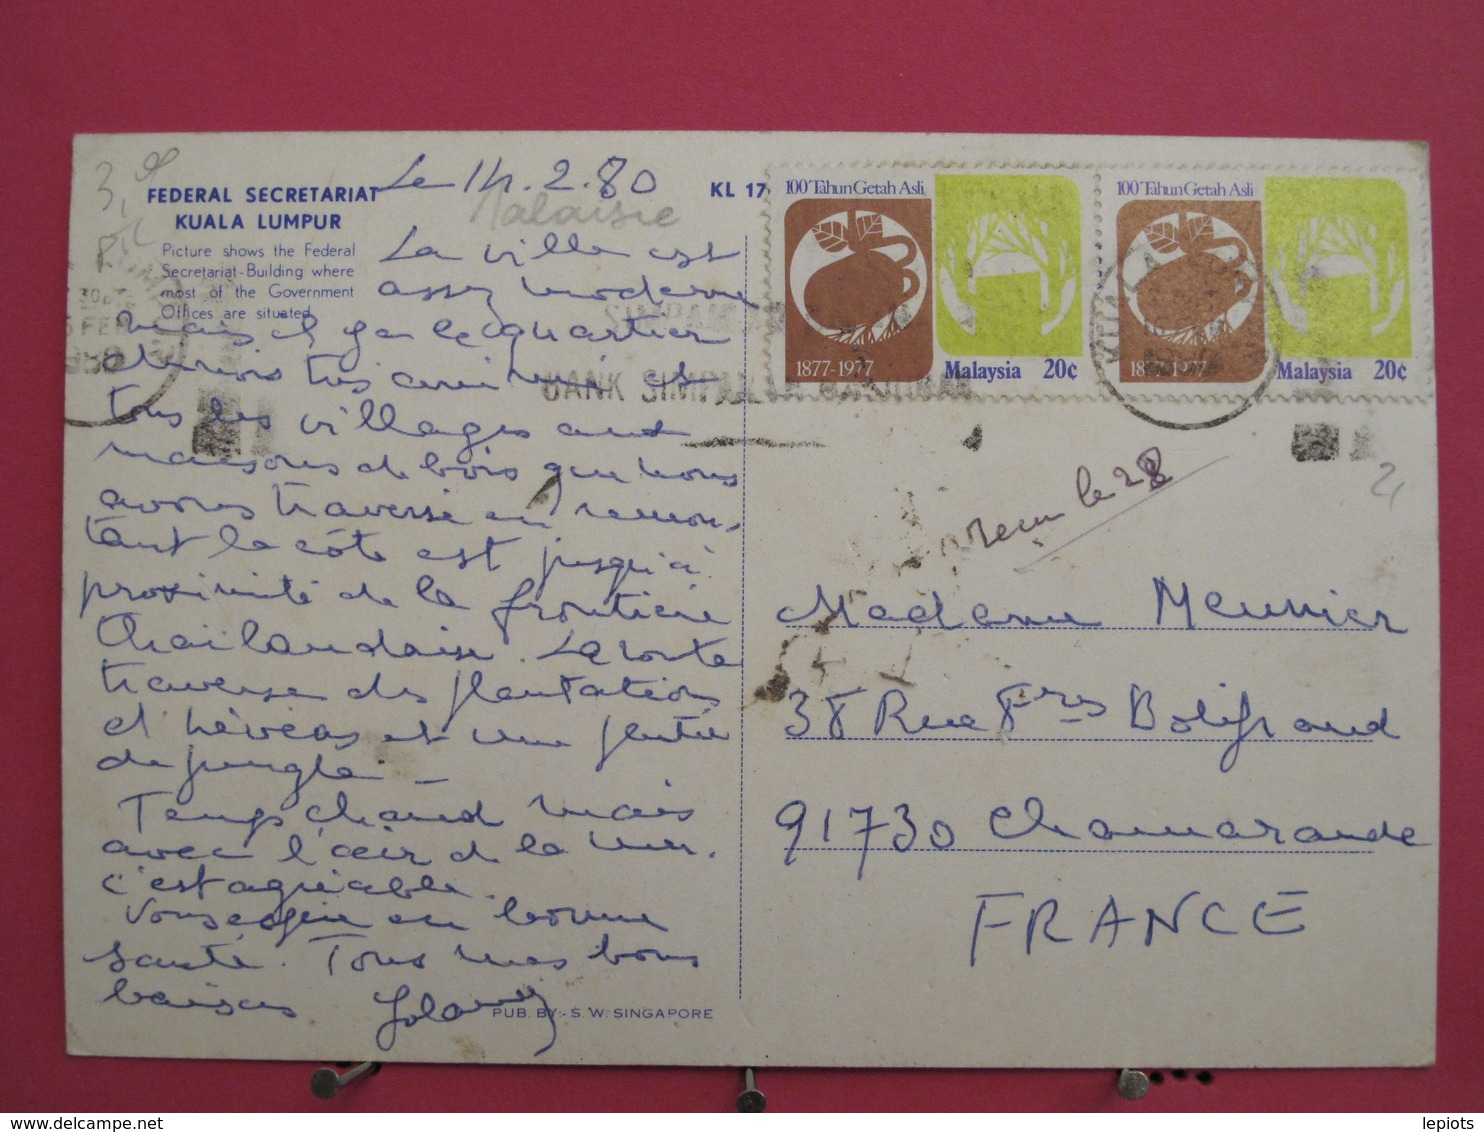 3,
FEDERAL SECRETARIAT
KUALA LUMPUR
Picture shows the Federal
Secretariat-Building where
most of the Government
Offices are situated.
KL 17
Le 14.2.80
Malaisie
La ville est
assez moderne
mais il y a le quartier
très
tous les villages aux
maisons de bois que nous
avons traversé en remon-
tant la côte est jusqu'à
proximité de la frontière
Thaïlandaise. La route
traverse des plantations
d'hévéas et une partie
de jungle -
Temps chaud mais
avec l'air de la mer.
c'est agréable.
Vous espère en bonne
santé. Tous mes bons
baisers
PUB. BY:- S. W. SINGAPORE
100 Tahun Getah Asli
1877-1977
Malaysia 20¢
100 Tahun Getah Asli
1877-1977
Malaysia 20¢
BANK SIMPANAN NASIONAL
KUALA LUMPUR
recu le 28
2,
Madame Meunier
38 Rue Frs Bolifraud
91730 Chamarande
FRANCE
lepiots